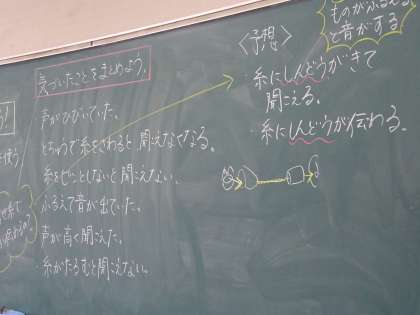 気づいたことをまとめよう。
・声がひびいていた。
とちゅうで糸をさわると聞えなくなる。
糸をピンとしないと聞えない。
ふるえて音が出ていた。
声が高く聞こえた。
・糸がたるむと聞えない。
を使う
〈予想〉
・糸にしんどうがきて
聞こえる。
・糸にしんどうが伝わる。
ものがふるえる
と音がする